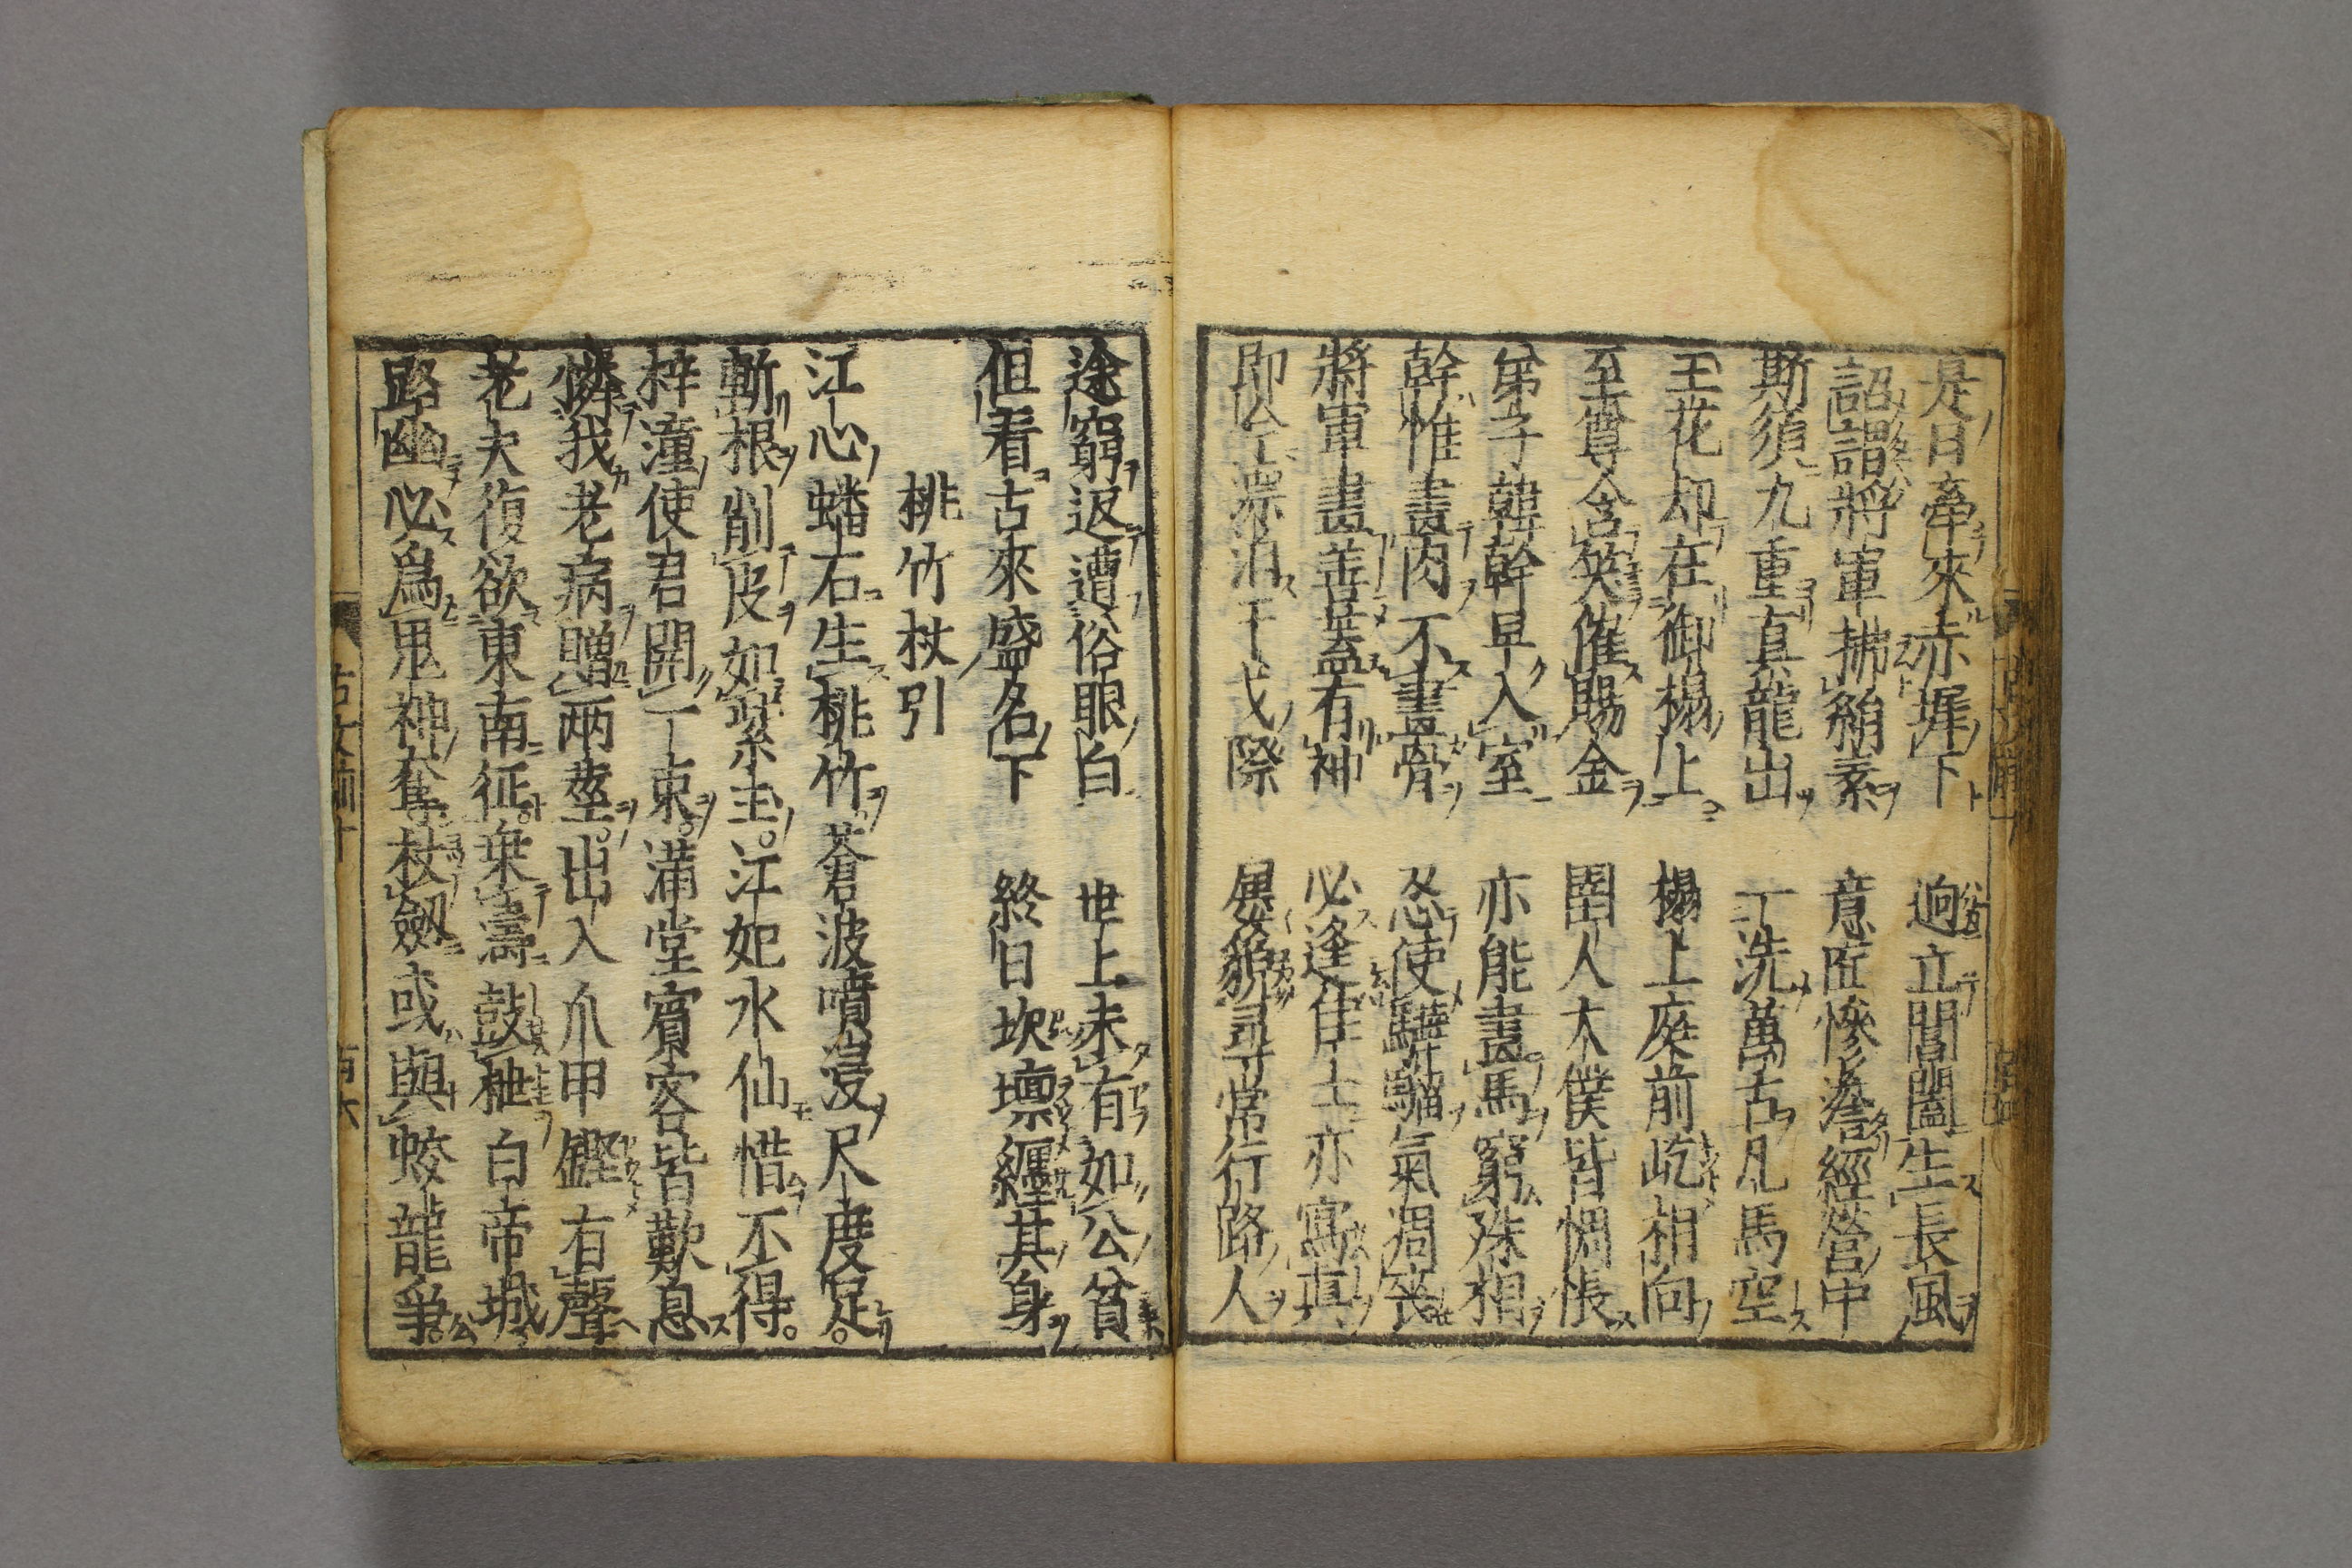 是日牽來赤墀下　迥立閶闔生長風
詔謂將軍拂絹素　意匠慘澹經營中
斯須九重真龍出　一洗萬古凡馬空
玉花却在御榻上　榻上庭前屹相向
至尊含笑催賜金　圉人太僕皆惆悵
弟子韓幹早入室　亦能畫馬窮殊相
幹惟畫肉不畫骨　忍使驊騮氣凋喪
將軍畫善蓋有神　必逢佳士亦寫真
即今漂泊干戈際　屢貌尋常行路人
途窮返遭俗眼白　世上未有如公貧
但看古來盛名下　終日坎壈纏其身
桃竹杖引
江心蟠石生桃竹蒼波噴浸尺度足。
斬根削皮如紫玉。江妃水仙惜不得。
梓潼使君開一束。滿堂賓客皆歎息
憐我老病贈兩莖。出入爪甲鏗有聲
老夫復欲東南征。乘濤鼓枻白帝城
路幽必爲鬼神奪。杖劔或與蛟龍爭。